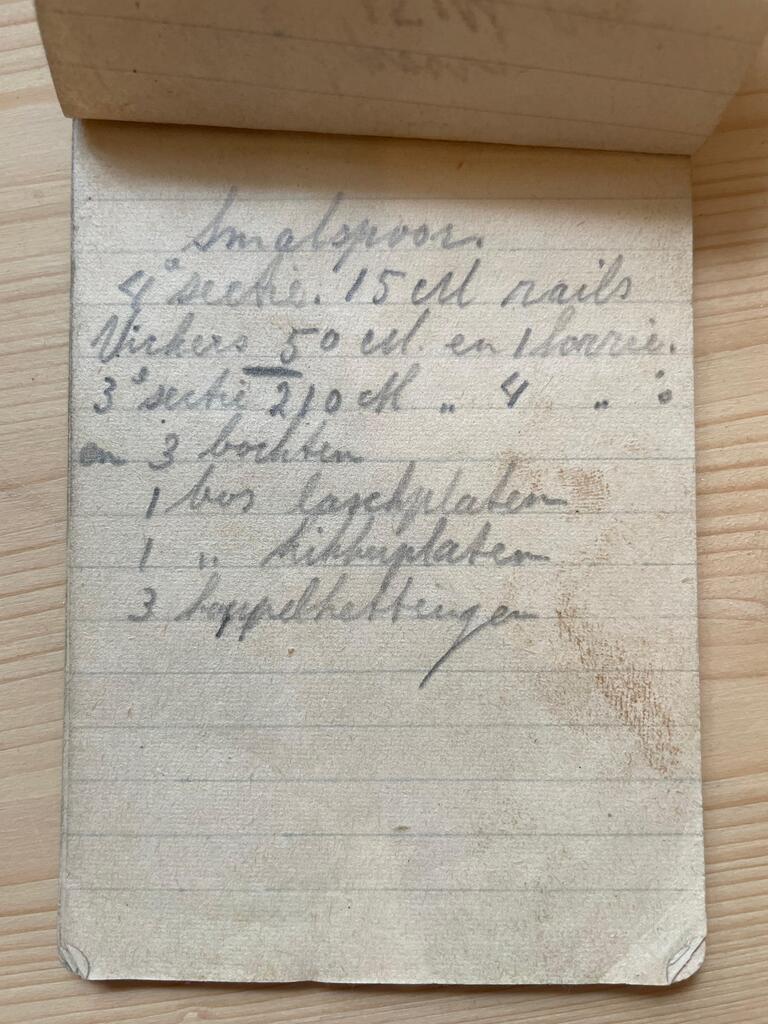 Smalspoor.
4e sectie. 15 M rails
Vickers 50 M. en 1 lorrie.
3e sectie 210 M „ 4 „ s
en 3 bochten
1 bos laschplaten
1 „ kikkerplaten
3 koppelkettingen